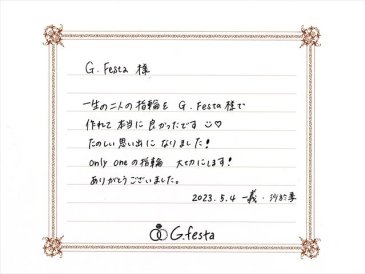 G.Festa 様
一生の二人の指輪を G.Festa様で
作れて本当に良かったです
たのしい思い出になりました!
only oneの指輪 大切にします!
ありがとうございました。
2023.5.4 一義・沙於季
G.festa